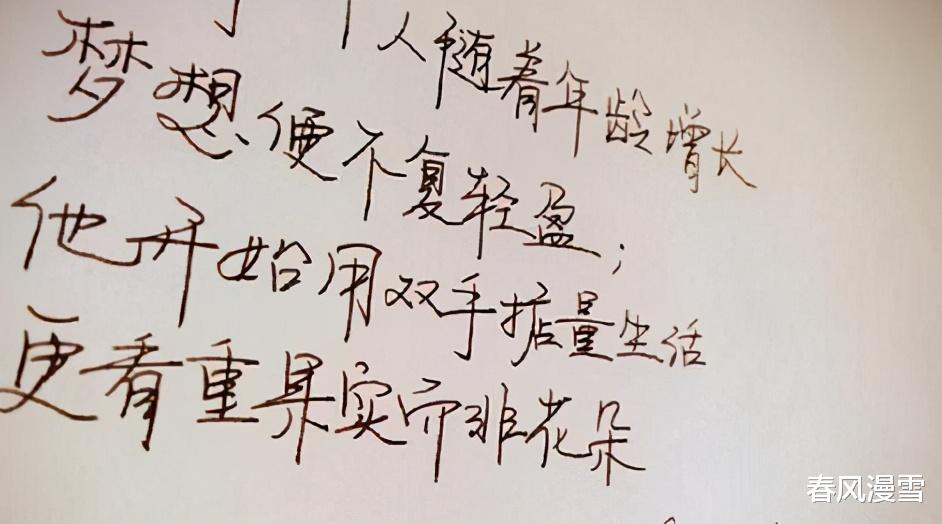 人随着年龄增长
梦想便不复轻盈；
他开始用双手掂量生活
更看重果实而非花朵
春风漫雪